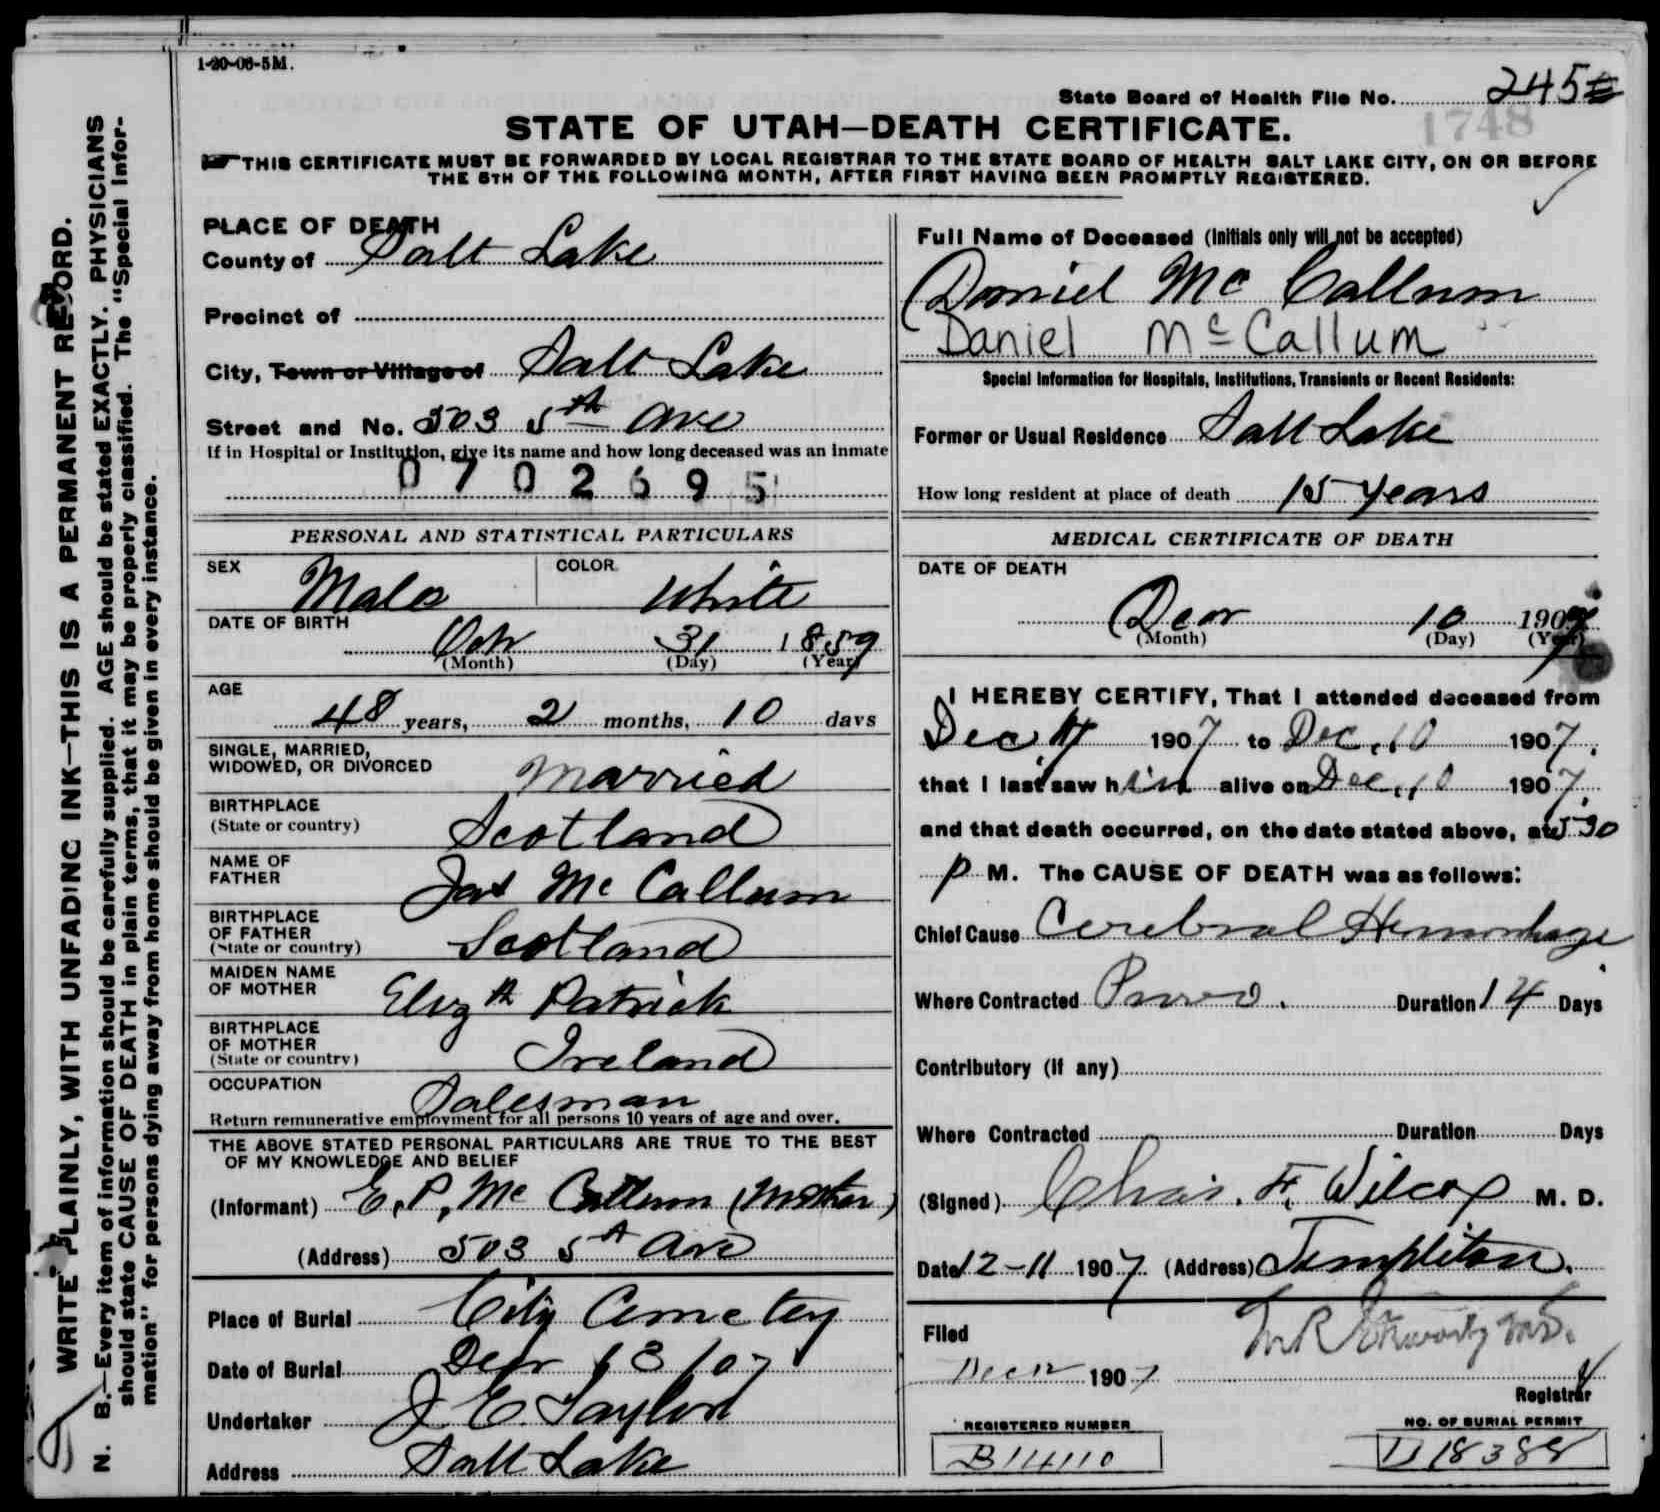 1-20-06-5M.
State Board of Health File No. 245
1748
STATE OF UTAH—DEATH CERTIFICATE.
THIS CERTIFICATE MUST BE FORWARDED BY LOCAL REGISTRAR TO THE STATE BOARD OF HEALTH SALT LAKE CITY, ON OR BEFORE
THE 5TH OF THE FOLLOWING MONTH, AFTER FIRST HAVING BEEN PROMPTLY REGISTERED.
WRITE PLAINLY, WITH UNFADING INK—THIS IS A PERMANENT RECORD.
N. B.—Every item of information should be carefully supplied. AGE should be stated EXACTLY. PHYSICIANS
should state CAUSE OF DEATH in plain terms, that it may be properly classified. The "Special Infor-
mation" for persons dying away from home should be given in every instance.
PLACE OF DEATH
County of Salt Lake
Precinct of
City, Town or Village of Salt Lake
Street and No. 503 5th Ave
If in Hospital or Institution, give its name and how long deceased was an inmate
0702695
PERSONAL AND STATISTICAL PARTICULARS
SEX Male COLOR White
DATE OF BIRTH
Oct 31 1859
(Month) (Day) (Year)
AGE
48 years, 2 months, 10 days
SINGLE, MARRIED,
WIDOWED, OR DIVORCED Married
BIRTHPLACE
(State or country) Scotland
NAME OF
FATHER Jas Mc Callum
BIRTHPLACE
OF FATHER
(State or country) Scotland
MAIDEN NAME
OF MOTHER Elizth Patrick
BIRTHPLACE
OF MOTHER
(State or country) Ireland
OCCUPATION Salesman
Return remunerative employment for all persons 10 years of age and over.
THE ABOVE STATED PERSONAL PARTICULARS ARE TRUE TO THE BEST
OF MY KNOWLEDGE AND BELIEF
(Informant) E. P. Mc Callum (Mother)
(Address) 503 5th Ave
Place of Burial City Cemetery
Date of Burial Decr 13/07
Undertaker J. E. Taylor
Address Salt Lake
Full Name of Deceased (Initials only will not be accepted)
Daniel Mc Callum
Daniel Mc Callum
Special Information for Hospitals, Institutions, Transients or Recent Residents:
Former or Usual Residence Salt Lake
How long resident at place of death 15 years
MEDICAL CERTIFICATE OF DEATH
DATE OF DEATH
Decr 10 1907
(Month) (Day) (Year)
I HEREBY CERTIFY, That I attended deceased from
Dec. 1907 to Dec. 10 1907.
that I last saw him alive on Dec. 10 1907.
and that death occurred, on the date stated above, at 5 30
P M. The CAUSE OF DEATH was as follows:
Chief Cause Cerebral Hemorrhage
Where Contracted Provo. Duration 14 Days
Contributory (if any)
Where Contracted Duration Days
(Signed) Chas. F. Wilcox M. D.
Date 12-11 1907 (Address) Templeton.
Filed
Dec 12 1907
Registrar
REGISTERED NUMBER
B14110
NO. OF BURIAL PERMIT
D18388